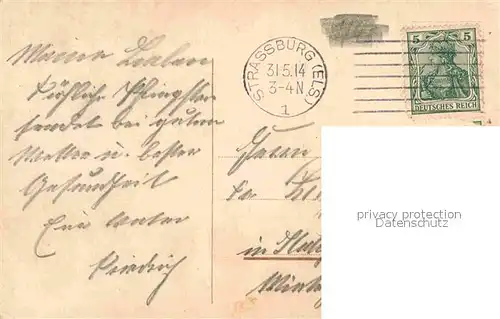 Meine Lieben
Fröhliche Pfingsten
sendet bei gutem
Wetter u. bester
Gesundheit
Friedrich
STRASSBURG (ELS)
31.5.14
3-4N
1
5 5
DEUTSCHES REICH
Herrn
in
privacy protection
Datenschutz